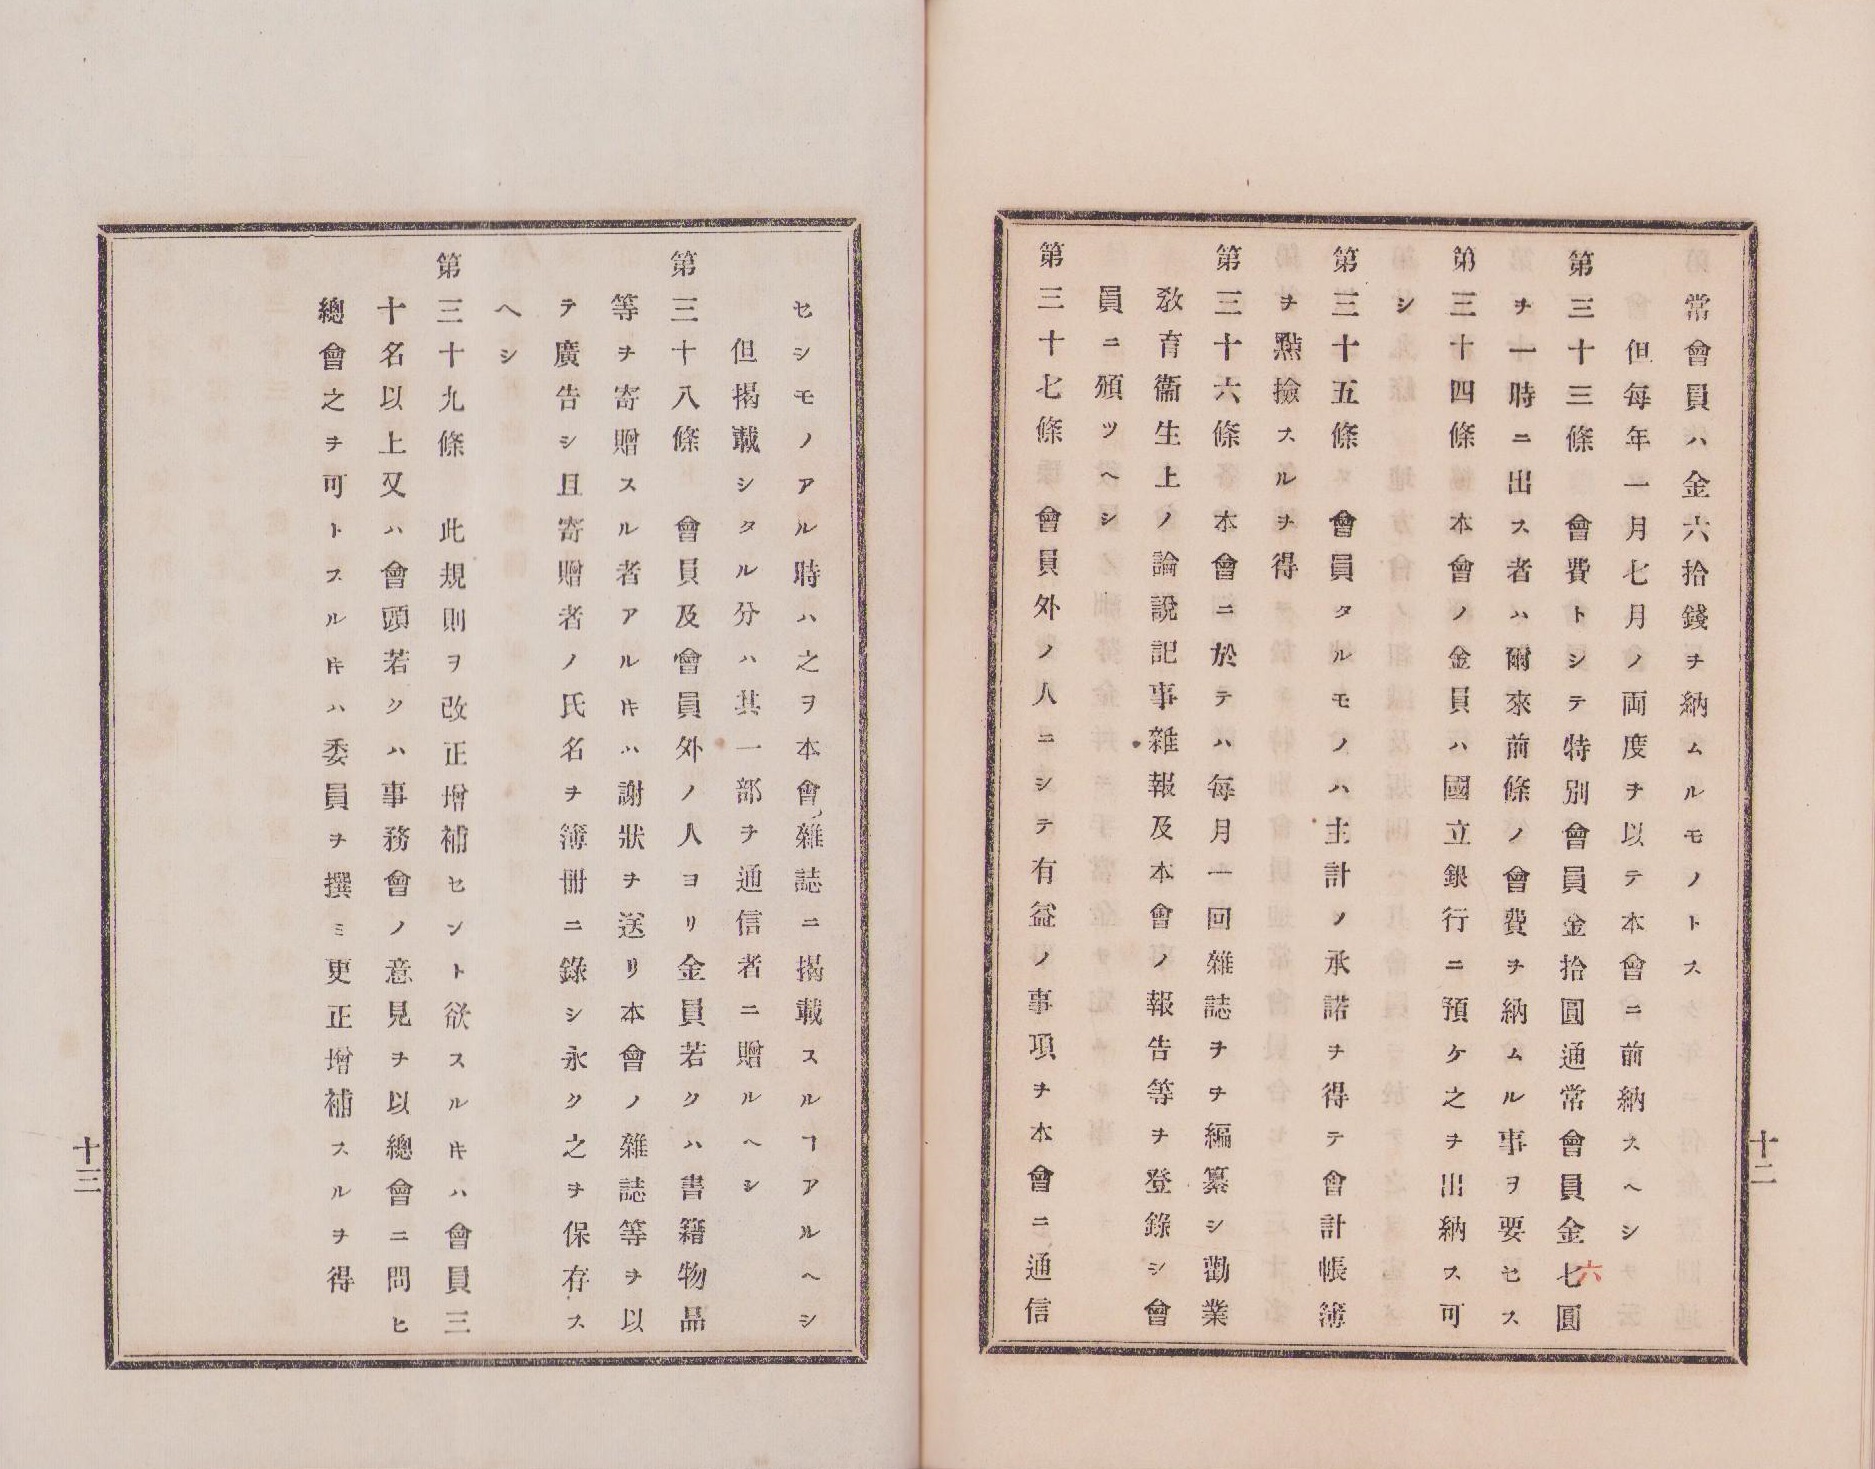 常會員ハ金六拾錢ヲ納ムルモノトス
但每年一月七月ノ両度ヲ以テ本會ニ前納スヘシ
第三十三條 會費トシテ特別會員金拾圓通常會員金七圓
六
ヲ一時ニ出ス者ハ爾來前條ノ會費ヲ納ムル事ヲ要セス
第三十四條 本會ノ金員ハ國立銀行ニ預ケ之ヲ出納ス可
シ
第三十五條 會員タルモノハ主計ノ承諾ヲ得テ會計帳簿
ヲ點撿スルヲ得
第三十六條 本會ニ於テハ每月一回雜誌ヲヲ編纂シ勸業
敎育衞生上ノ論說記事雜報及本會ノ報告等ヲ登錄シ會
員ニ頒ツヘシ
第三十七條 會員外ノ人ニシテ有益ノ事項ヲ本會ニ通信
十二
セシモノアル時ハ之ヲ本會雜誌ニ揭載スルヿアルヘシ
但揭載シタル分ハ其一部ヲ通信者ニ贈ルヘシ
第三十八條 會員及會員外ノ人ヨリ金員若クハ書籍物品
等ヲ寄贈スル者アルキハ謝狀ヲ送リ本會ノ雜誌等ヲ以
テ廣告シ且寄贈者ノ氏名ヲ簿冊ニ錄シ永ク之ヲ保存ス
ヘシ
第三十九條 此規則ヲ改正增補セント欲スルキハ會員三
十名以上又ハ會頭若クハ事務會ノ意見ヲ以總會ニ問ヒ
總會之ヲ可トスルキハ委員ヲ撰ミ更正增補スルヲ得
十三